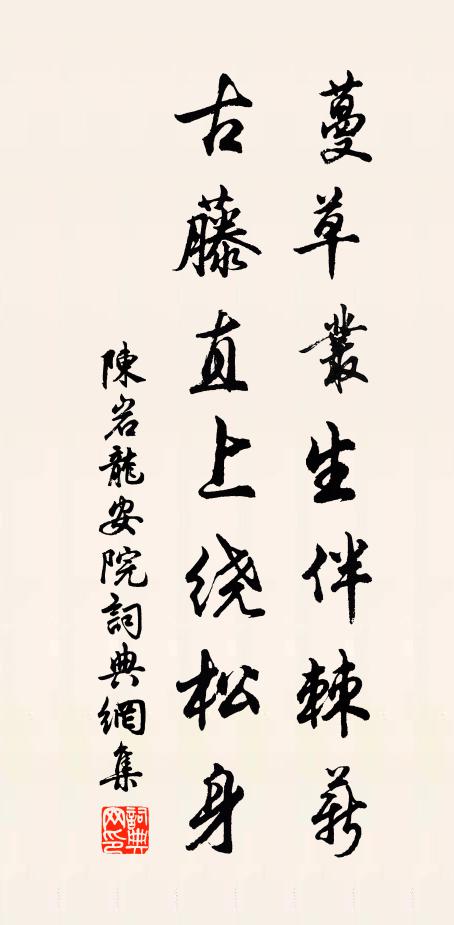 蔓草叢生伴棘薪
古藤直上绕松身
陳岩龍安院詞典網集
詞典网印